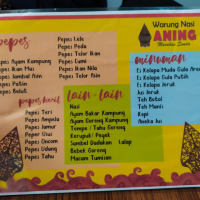 Warung Nasi
ANING
Masakan Sunda
Pepes
Pepes Ayam Kampung
Pepes Ikan Mas
Pepes Jambal Asin
Pepes Patin
Pepes Belut
Pepes Lele
Pepes Peda
Pepes Telur Ikan
Pepes Cumi
Pepes Ikan Nila
Pepes Telur Asin
Pepes kecil
Pepes Teri
Pepes Ampela
Pepes Jamur
Pepes Usus
Pepes Oncom
Pepes Udang
Pepes Tahu
Lain-lain
Nasi
Ayam Bakar Kampung
Ayam Goreng Kampung
Tempe / Tahu Goreng
Kerupuk / Pejek
Sambal Dadakan Lalap
Bebek Goreng
Macam Tumisan
minuman
Es Kelapa Muda Gula Aren
Es Kelapa Gula Putih
Es Jeruk
Jus Jeruk
Teh Botol
Teh Manis
Kopi
Aneka Jus